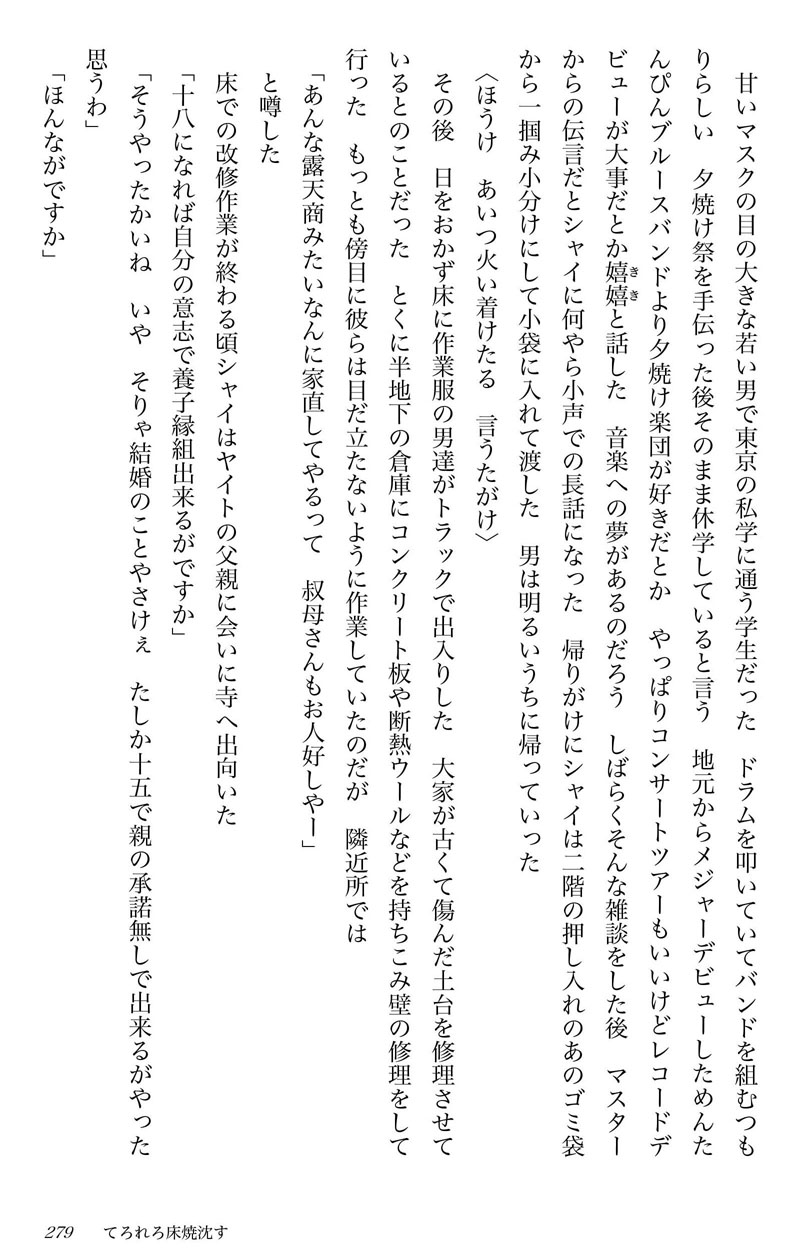 甘いマスクの目の大きな若い男で東京の私学に通う学生だった　ドラムを叩いていてバンドを組むつも
りらしい　夕焼け祭を手伝った後そのまま休学していると言う　地元からメジャーデビューしためんた
んぴんブルースバンドより夕焼け楽団が好きだとか　やっぱりコンサートツアーもいいけどレコードデ
ビューが大事だとか嬉嬉と話した　音楽への夢があるのだろう　しばらくそんな雑談をした後　マスター
からの伝言だとシャイに何やら小声での長話になった　帰りがけにシャイは二階の押し入れのあのゴミ袋
から一掴み小分けにして小袋に入れて渡した　男は明るいうちに帰っていった
〈ほうけ　あいつ火い着けたる　言うたがけ〉
その後　日をおかず床に作業服の男達がトラックで出入りした　大家が古くて傷んだ土台を修理させて
いるとのことだった　とくに半地下の倉庫にコンクリート板や断熱ウールなどを持ちこみ壁の修理をして
行った　もっとも傍目に彼らは目だ立たないように作業していたのだが　隣近所では
「あんな露天商みたいなんに家直してやるって　叔母さんもお人好しやー」
と噂した
床での改修作業が終わる頃シャイはヤイトの父親に会いに寺へ出向いた
「十八になれば自分の意志で養子縁組出来るがですか」
「そうやったかいね　いや　そりゃ結婚のことやさけぇ　たしか十五で親の承諾無しで出来るがやった
思うわ」
「ほんながですか」
きき
279　てろれろ床焼沈す